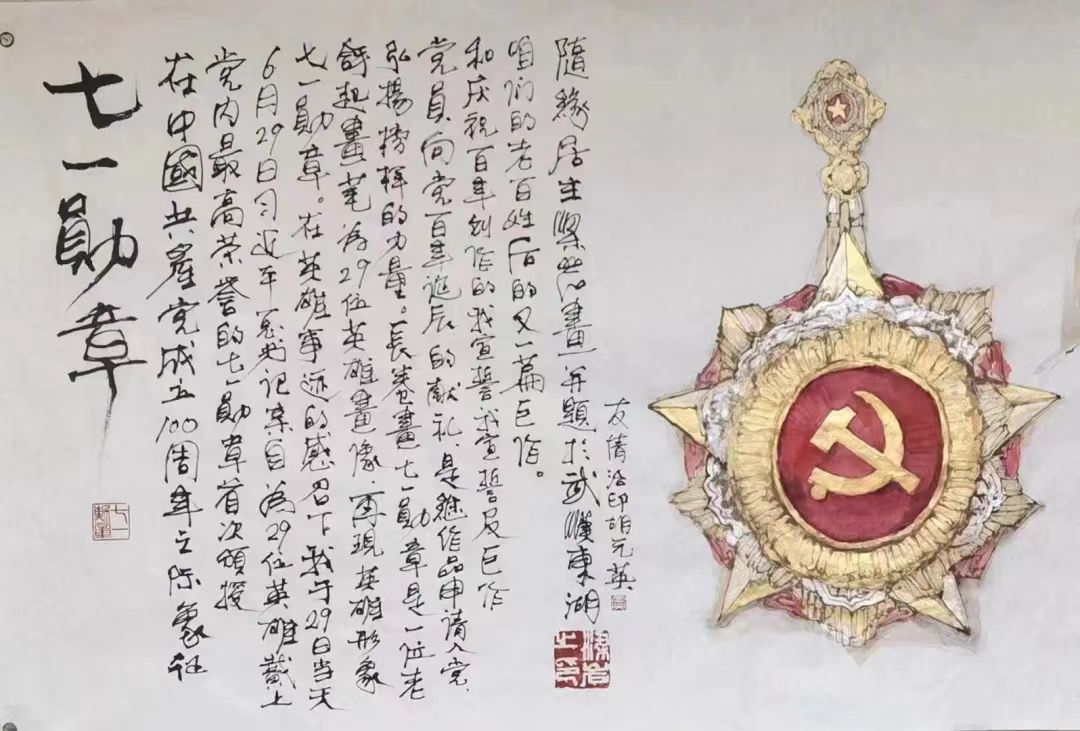 七一勛章
在中國共产党成立100周年之际象征
党内最高荣誉的七一勛章首次颁授
6月29日习近平总书记亲自为29位英雄戴上
七一勛章。在英雄事迹的感召下我于29日当天
起畫笔为29位英雄畫像、再現英雄形象
弘揚榜样的力量。長卷畫七一勛章是一位老
党员向党百年诞辰的献礼、是继作品申请入党
和庆祝百年创作的我宣誓我宣誓及巨作
咱们的老百姓后的又一篇巨作。
隨緣居主畫并題於武漢東湖
友倩治印胡元英
七一勛章
之印